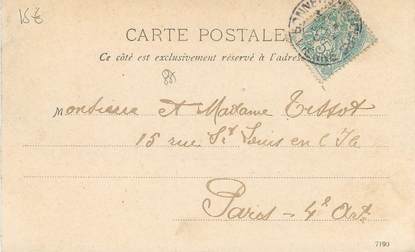 15€
CARTE POSTALE
Ce côté est exclusivement réservé à l'adresse
Monsieur et Madame Tissot
15 rue St Louis en l'Ile
Paris - 4e Art
7190